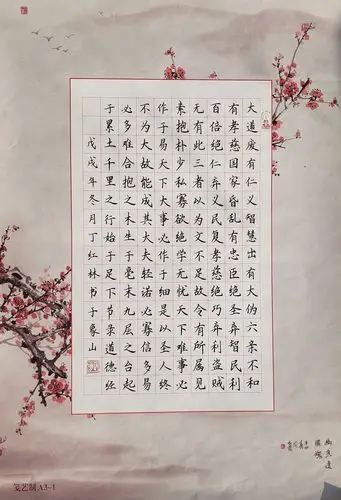 大道废有仁义智慧出有大伪六亲不和
有孝慈国家昏乱有忠臣绝圣弃智民利
百倍绝仁弃义民复孝慈绝巧弃利盗贼
无有此三者以为文不足故令有所属见
素抱朴少私寡欲绝学无忧天下难事必
作于易天下大事必作于细是以圣人终
不为大故能成其大夫轻诺必寡信多易
必多难合抱之木生于毫末九层之台起
于累土千里之行始于足下节录道德经
戊戌年冬月丁红林书于象山
笺艺制 A3-1